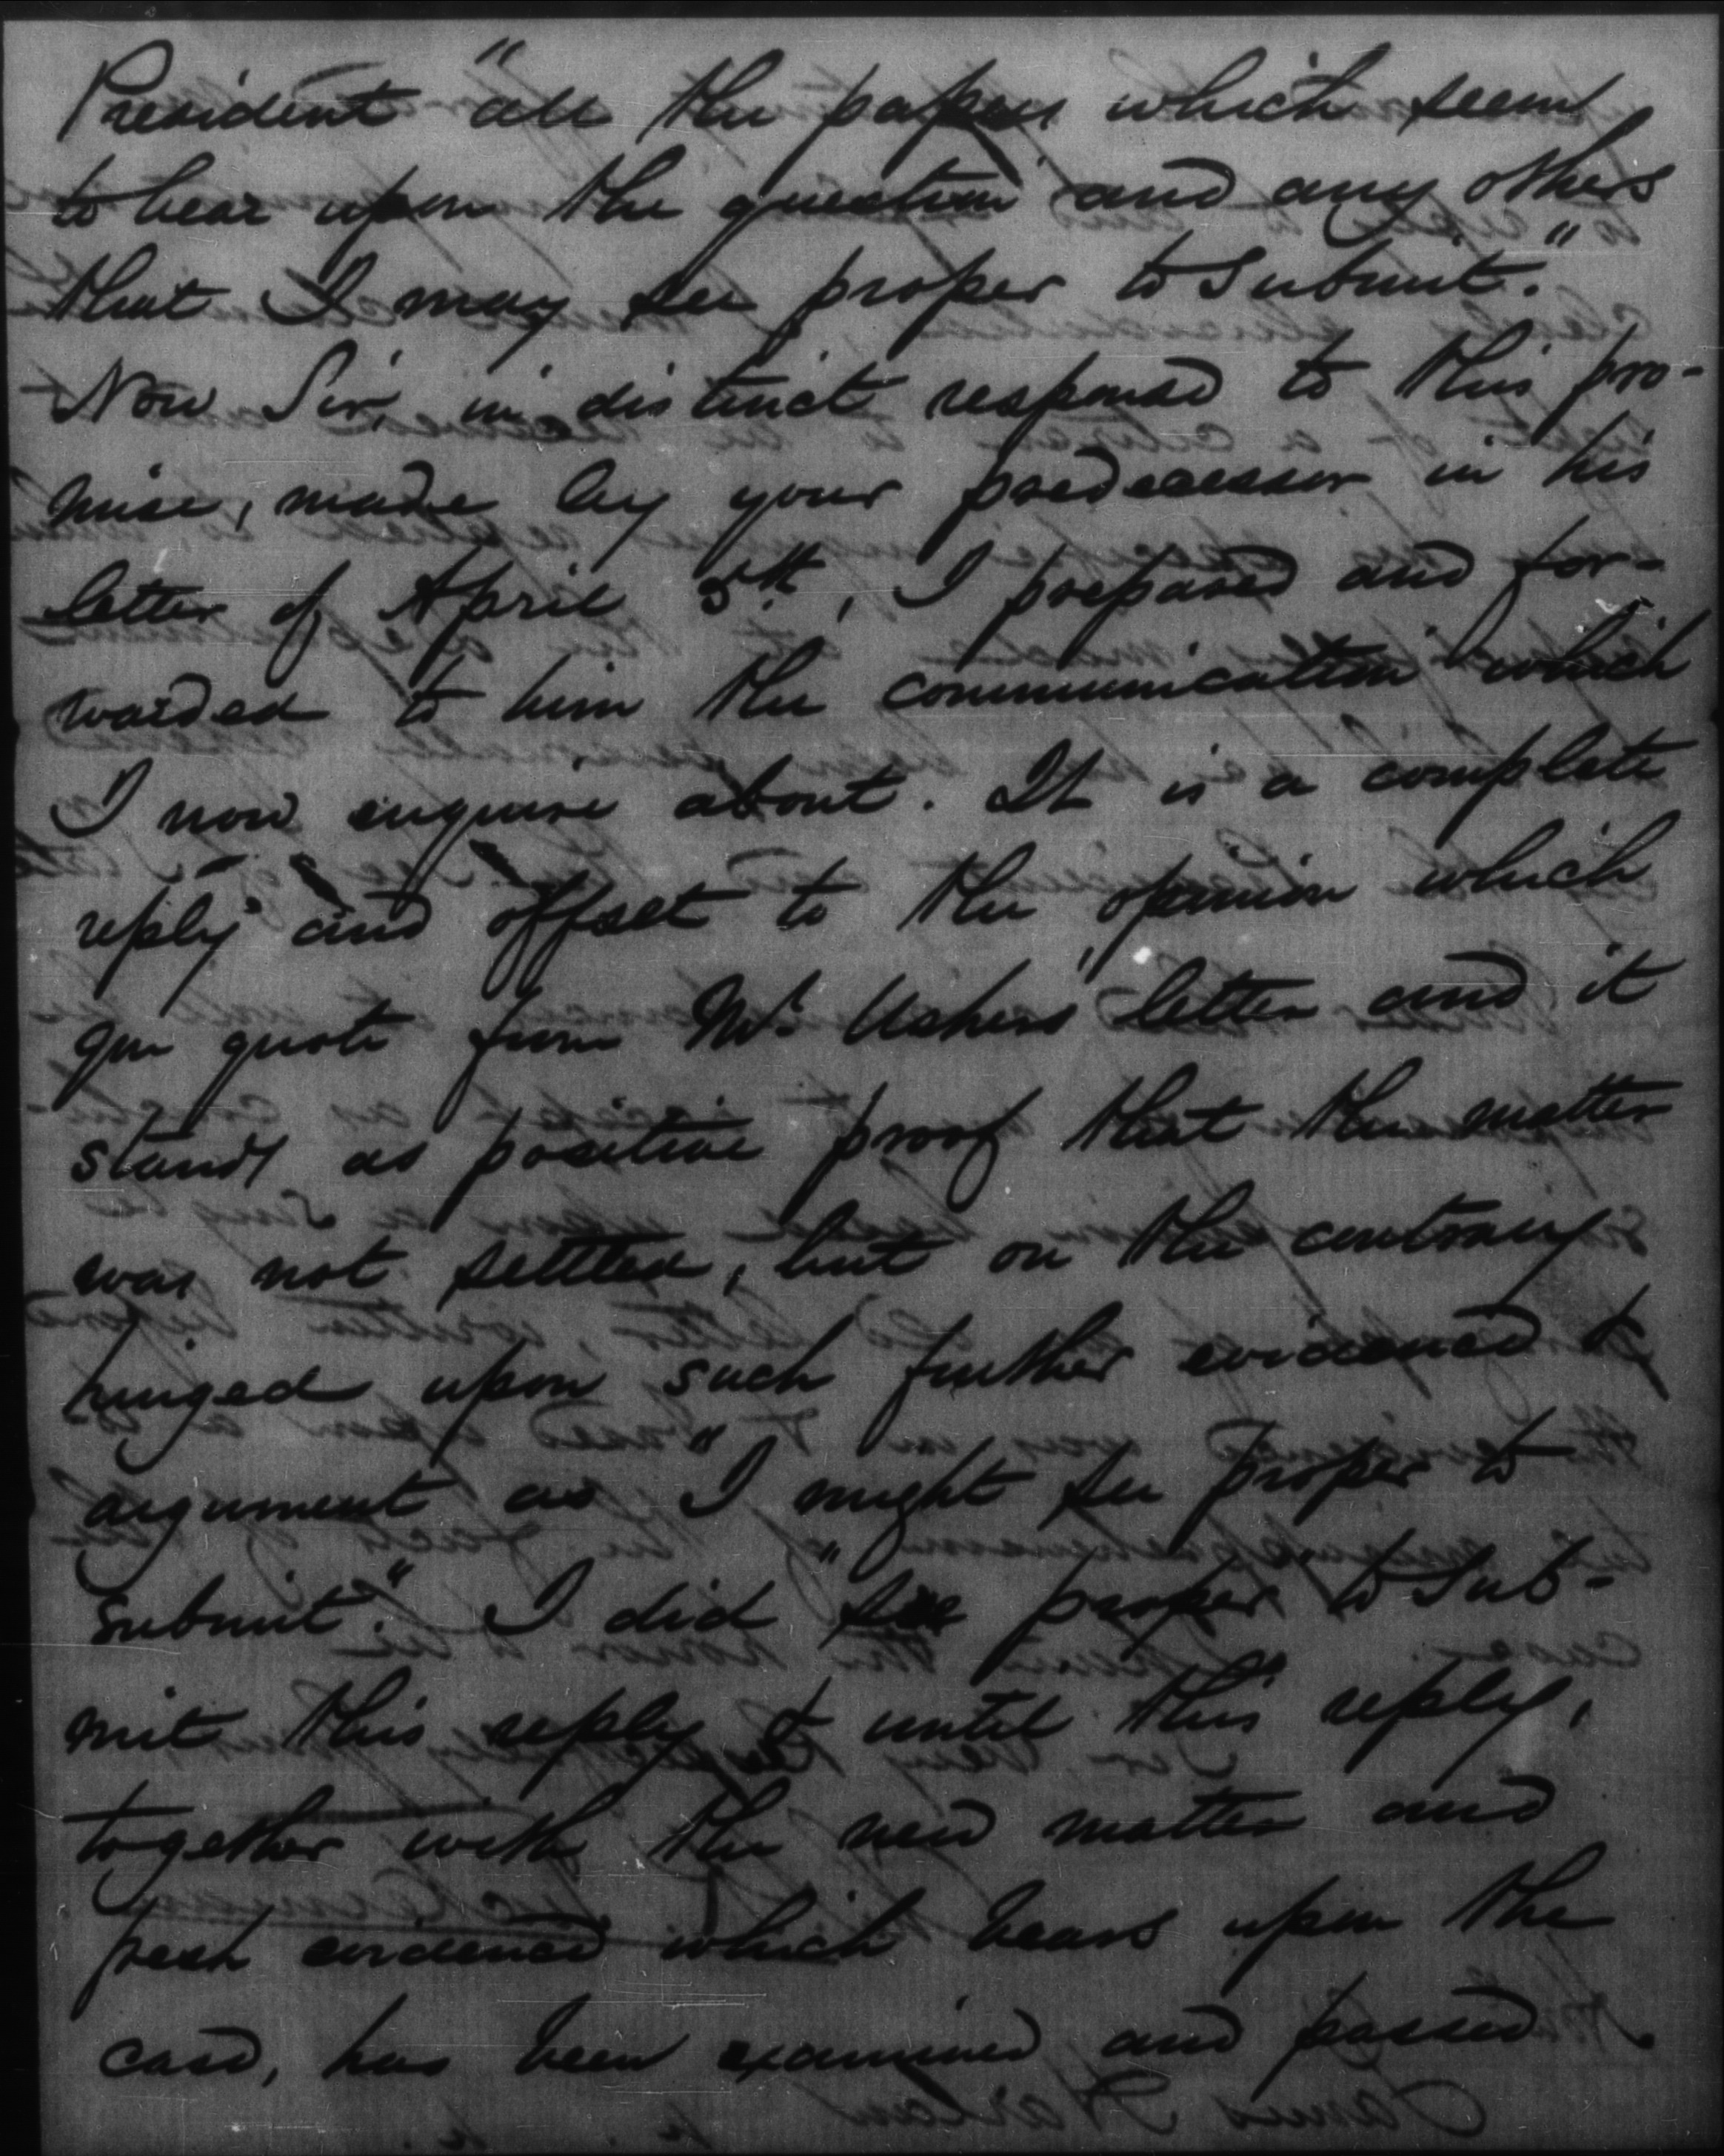 President "all the papers which seem
to bear upon the question and any others
that I may see proper to submit."
Now Sir, in distinct response to this pro-
mise, made by your predecessor in his
letter of April 5th, I prepared and for-
warded to him the communication which
I now enquire about. It is a complete
reply and offset to the opinion which
you quote from Mr. Ushers' letter and it
stands as positive proof that the matter
was not settled, but on the contrary
hinged upon such further evidence &
argument as "I might see proper to
submit." I did "see proper" to sub-
mit this reply & until this reply,
together with the new matter and
fresh evidence which bears upon the
case, has been examined and passed